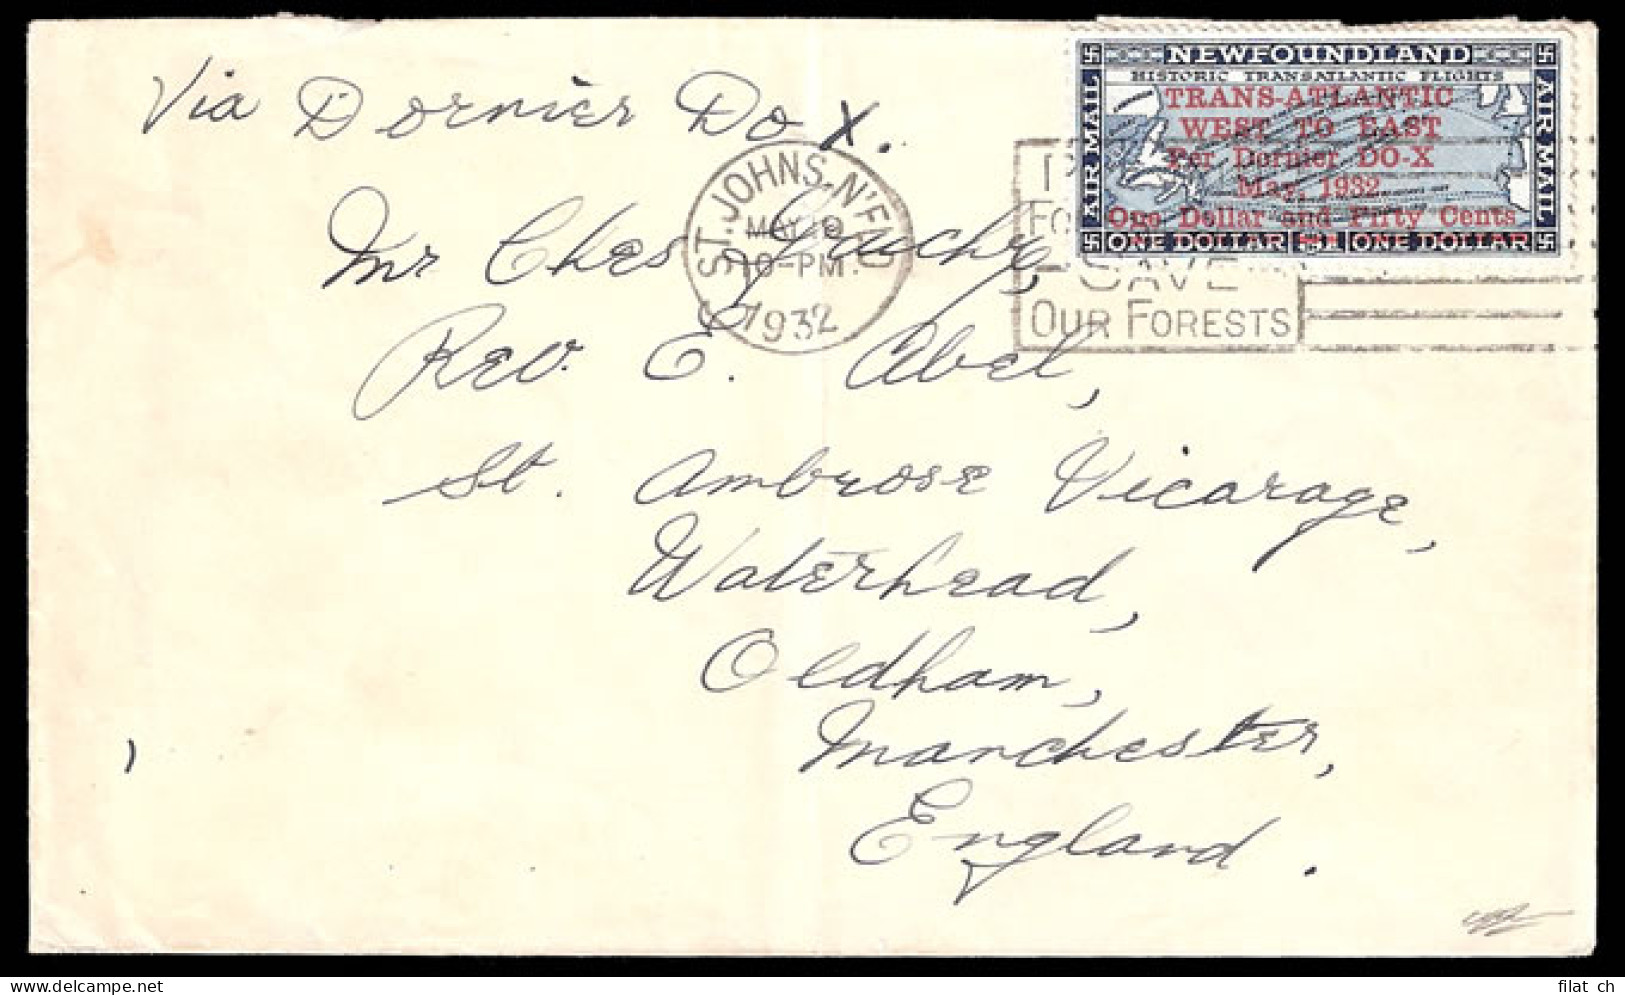 Via Dornier Do X.
NEWFOUNDLAND
HISTORIC TRANSATLANTIC FLIGHTS
AIR MAIL
AIR MAIL
TRANS-ATLANTIC
WEST TO EAST
Per Dornier DO-X
May, 1932
One Dollar and Fifty Cents
ONE DOLLAR $1 ONE DOLLAR
ST. JOHN'S. N'F'LD
MAY 19
10-PM.
1932
SAVE
OUR FORESTS
Mr Ches
Rev. E. Abel,
St. Ambrose Vicarage,
Waterhead,
Oldham,
Manchester,
England.
filat ch